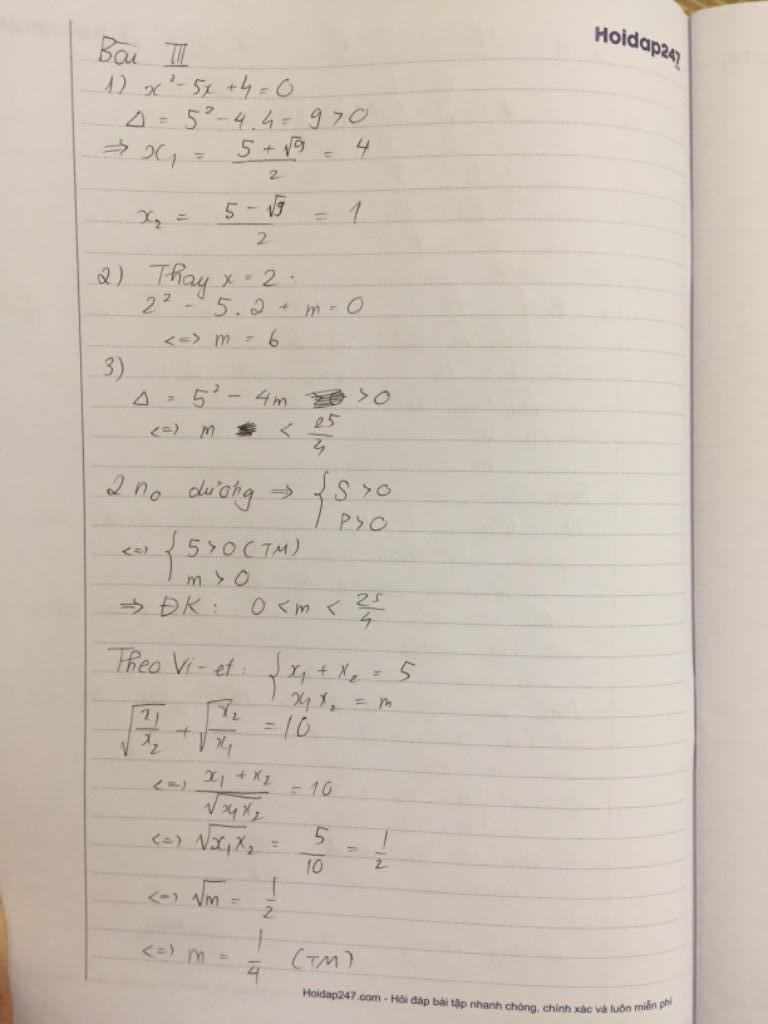 Hoidap247
Bài III
1) x² - 5x + 4 = 0
Δ = 5² - 4.4 = 9 > 0
⇒ x₁ = (5 + √9)/2 = 4
x₂ = (5 - √9)/2 = 1
2) Thay x = 2 :
2² - 5.2 + m = 0
<=> m = 6
3)
Δ = 5² - 4m > 0
<=> m < 25/4
2 n₀ dương ⇒ { S > 0
P > 0
<=> { 5 > 0 (TM)
m > 0
⇒ ĐK : 0 < m < 25/4
Theo Vi-et : { x₁ + x₂ = 5
x₁ x₂ = m
√(x₁/x₂) + √(x₂/x₁) = 10
<=> (x₁ + x₂)/√(x₁x₂) = 10
<=> √(x₁x₂) = 5/10 = 1/2
<=> √m = 1/2
<=> m = 1/4 (TM)
Hoidap247.com - Hỏi đáp bài tập nhanh chóng, chính xác và luôn miễn phí